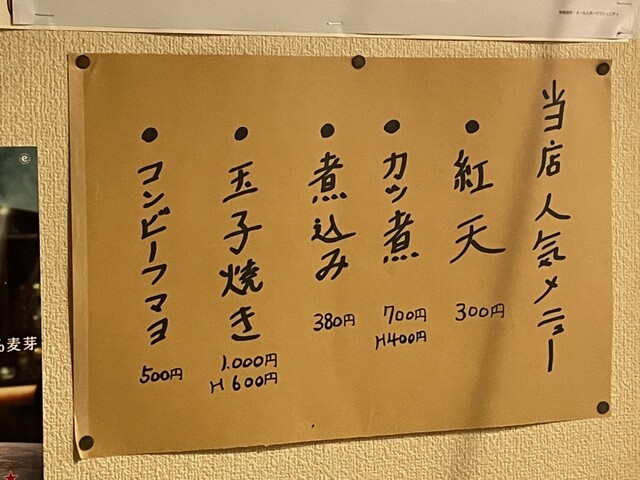 当店人気メニュー
● 紅天 300円
● カツ煮 700円
H400円
● 煮込み 380円
● 玉子焼き 1.000円
H600円
● コンビーフマヨ 500円
%麦芽